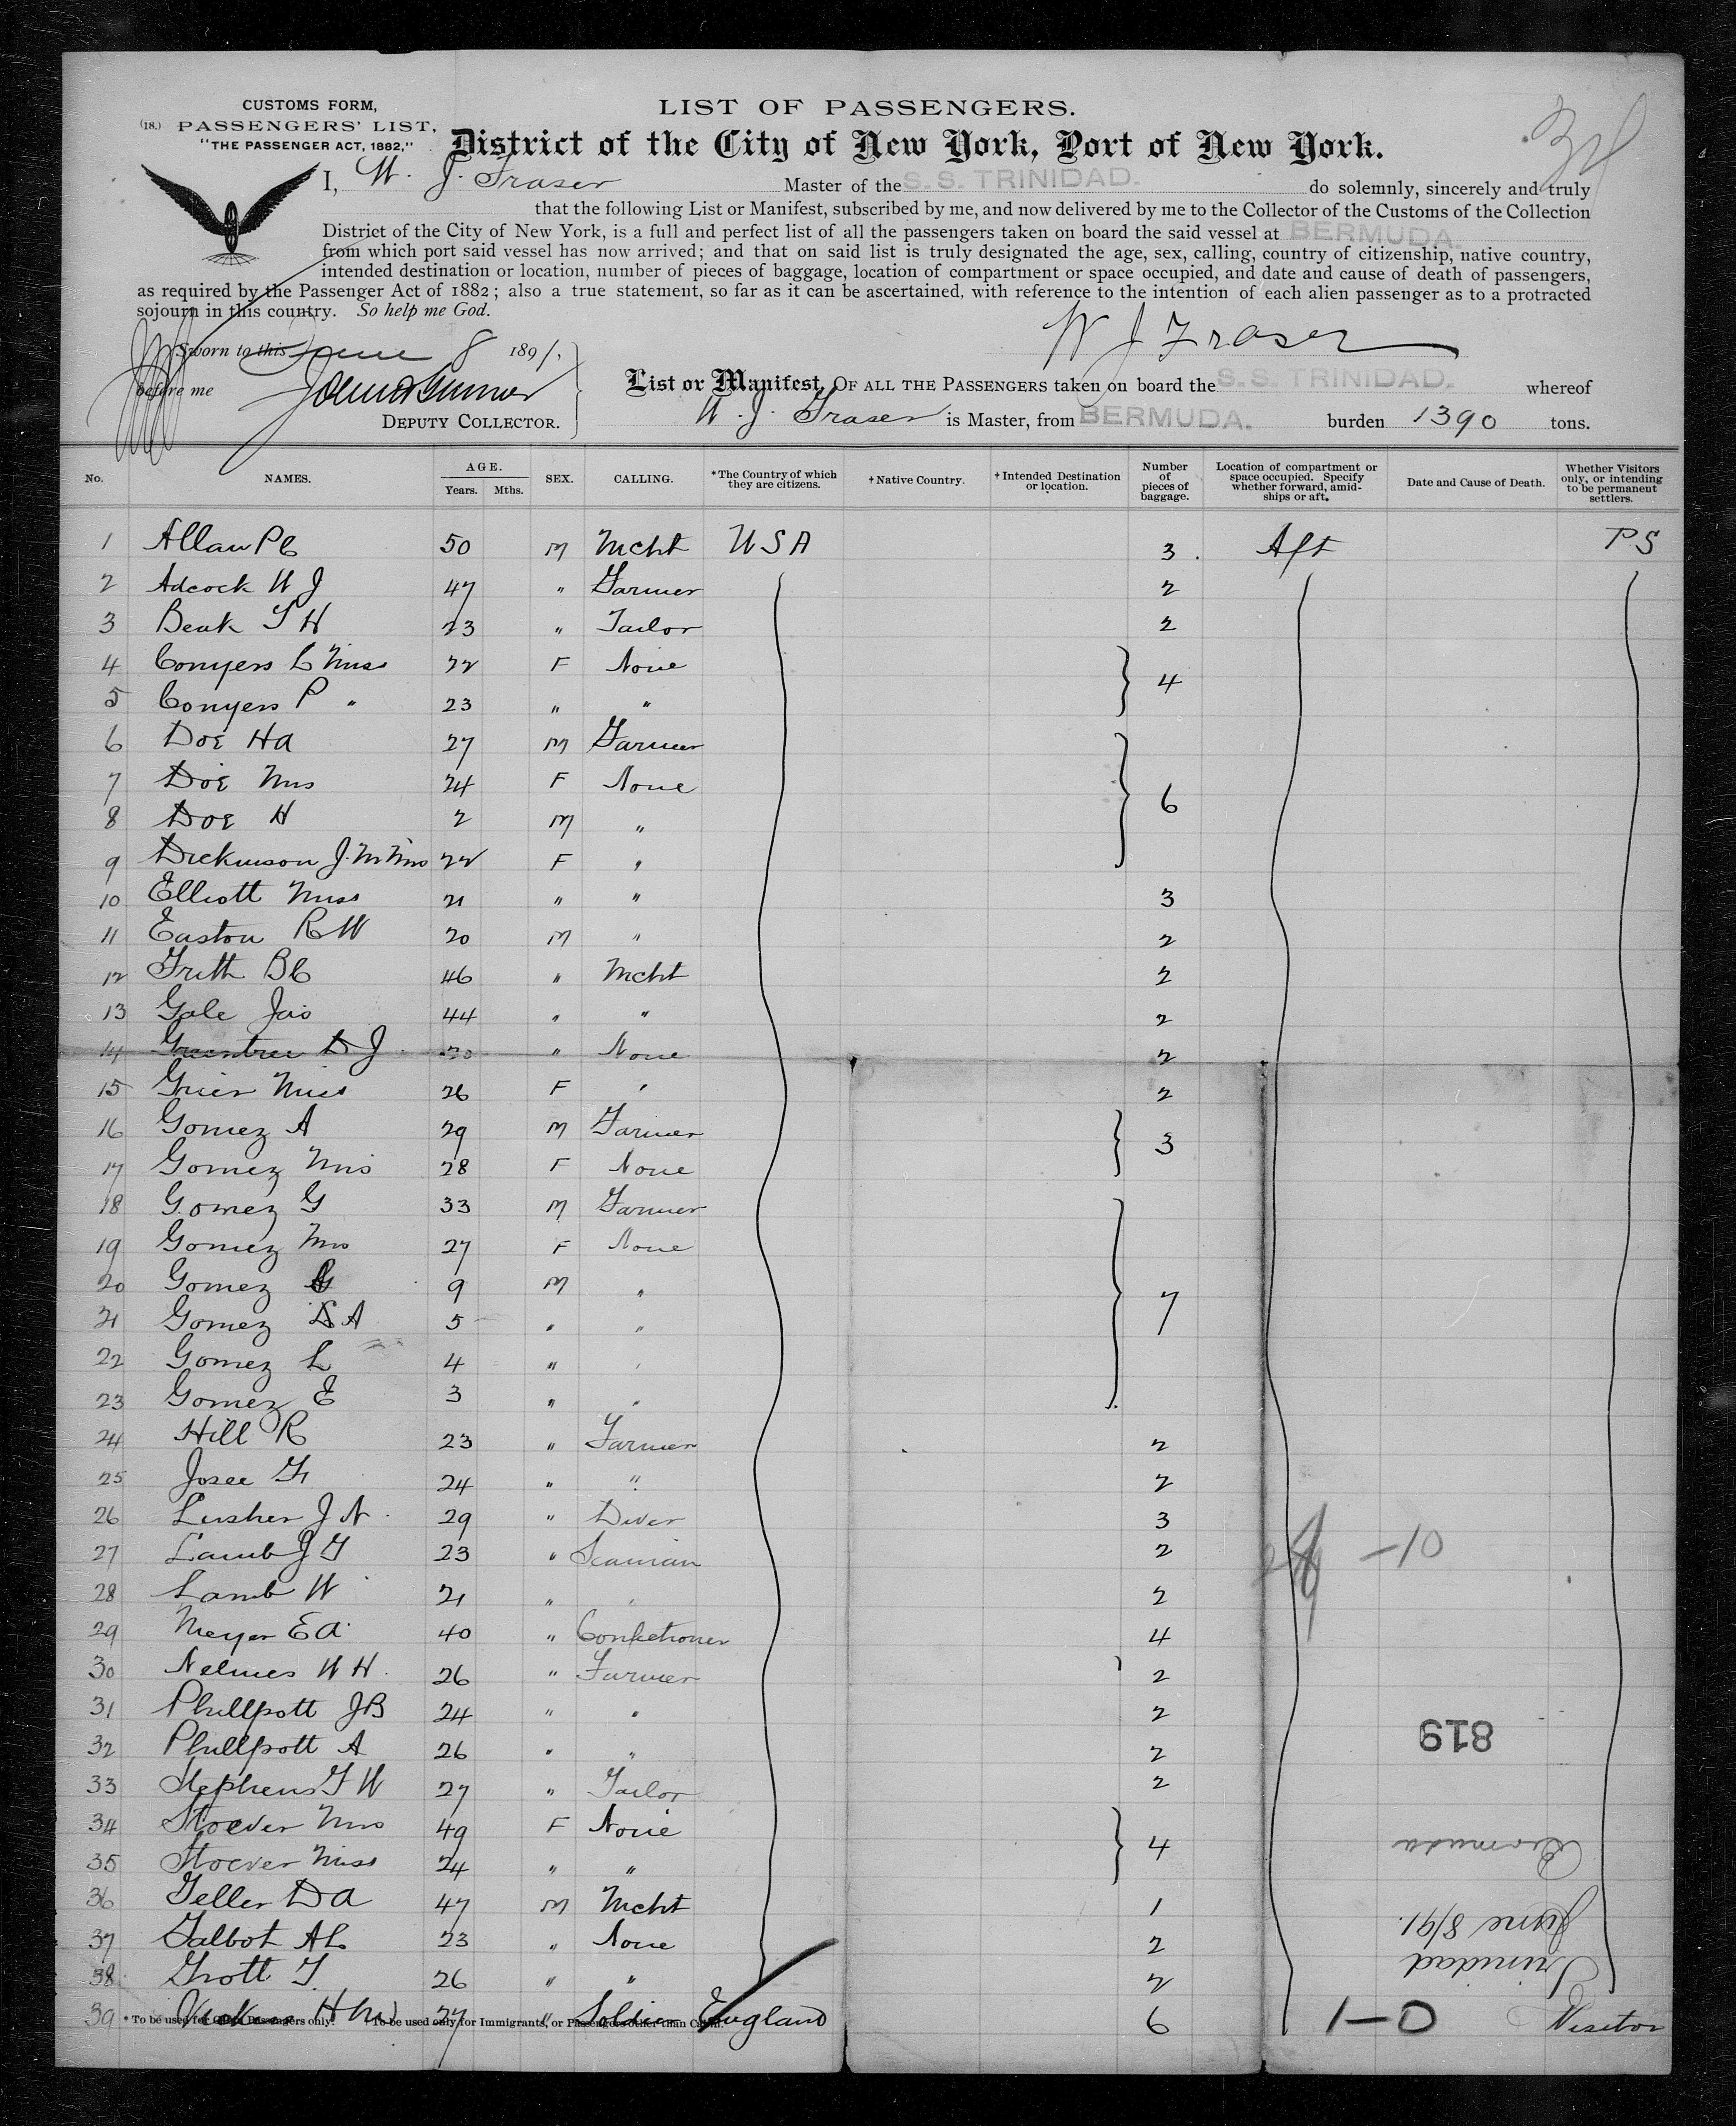 CUSTOMS FORM,
(18.) PASSENGERS' LIST,
"THE PASSENGER ACT, 1882,"
LIST OF PASSENGERS.
District of the City of New York, Port of New York.
I, W. J. Fraser Master of the S. S. TRINIDAD. do solemnly, sincerely and truly
that the following List or Manifest, subscribed by me, and now delivered by me to the Collector of the Customs of the Collection
District of the City of New York, is a full and perfect list of all the passengers taken on board the said vessel at BERMUDA.
from which port said vessel has now arrived; and that on said list is truly designated the age, sex, calling, country of citizenship, native country,
intended destination or location, number of pieces of baggage, location of compartment or space occupied, and date and cause of death of passengers,
as required by the Passenger Act of 1882; also a true statement, so far as it can be ascertained, with reference to the intention of each alien passenger as to a protracted
sojourn in this country. So help me God.
W J Fraser
Sworn to this June 8 1891,
before me
DEPUTY COLLECTOR.
List or Manifest, OF ALL THE PASSENGERS taken on board the S. S. TRINIDAD. whereof
W. J. Fraser is Master, from BERMUDA. burden 1390 tons.
No. NAMES. AGE. Years. Mths. SEX. CALLING. *The Country of which they are citizens. †Native Country. †Intended Destination or location. Number of pieces of baggage. Location of compartment or space occupied. Specify whether forward, amidships or aft. Date and Cause of Death. Whether Visitors only, or intending to be permanent settlers.
1 Allan P C 50 M Mcht U S A 3 Aft P S
2 Adcock W J 47 " Farmer 2
3 Beak S H 23 " Tailor 2
4 Conyers C Miss 22 F None 4
5 Conyers P " 23 " "
6 Doe H A 27 M Farmer 6
7 Doe Mrs 24 F None
8 Doe H 2 M "
9 Dickinson J. M Mrs 22 F "
10 Elliott Miss 21 " " 3
11 Easton R W 20 M " 2
12 Frith B C 46 " Mcht 2
13 Gale Jas 44 " " 2
14 Greentree D J 20 " None 2
15 Grier Miss 26 F " 2
16 Gomez A 29 M Farmer 3
17 Gomez Mrs 28 F None
18 Gomez G 33 M Farmer 7
19 Gomez Mrs 27 F None
20 Gomez G 9 M "
21 Gomez A 5 " "
22 Gomez L 4 " "
23 Gomez E 3 " "
24 Hill R 23 " Farmer 2
25 Josee 24 " " 2
26 Lusher J N 29 " Diver 3
27 Lamb J G 23 " Seaman 2
28 Lamb W 21 " " 2
29 Meyer E A 40 " Confectioner 4
30 Nelmes W H 26 " Farmer 2
31 Phillpott J B 24 " " 2
32 Phillpott A 26 " " 2
33 Stephens G W 27 " Tailor 2
34 Stoever Mrs 49 F None 4
35 Stoever Miss 24 " "
36 Geller D A 47 M Mcht 1
37 Talbot A L 23 " None 2
38 Trott T 26 " " 2
39 H 27 " Soldier England 6 1-0 Visitor
* To be used for Passengers only. To be used only for Immigrants, or Passengers other than
-10
819
Bermuda
June 8/91.
Trinidad